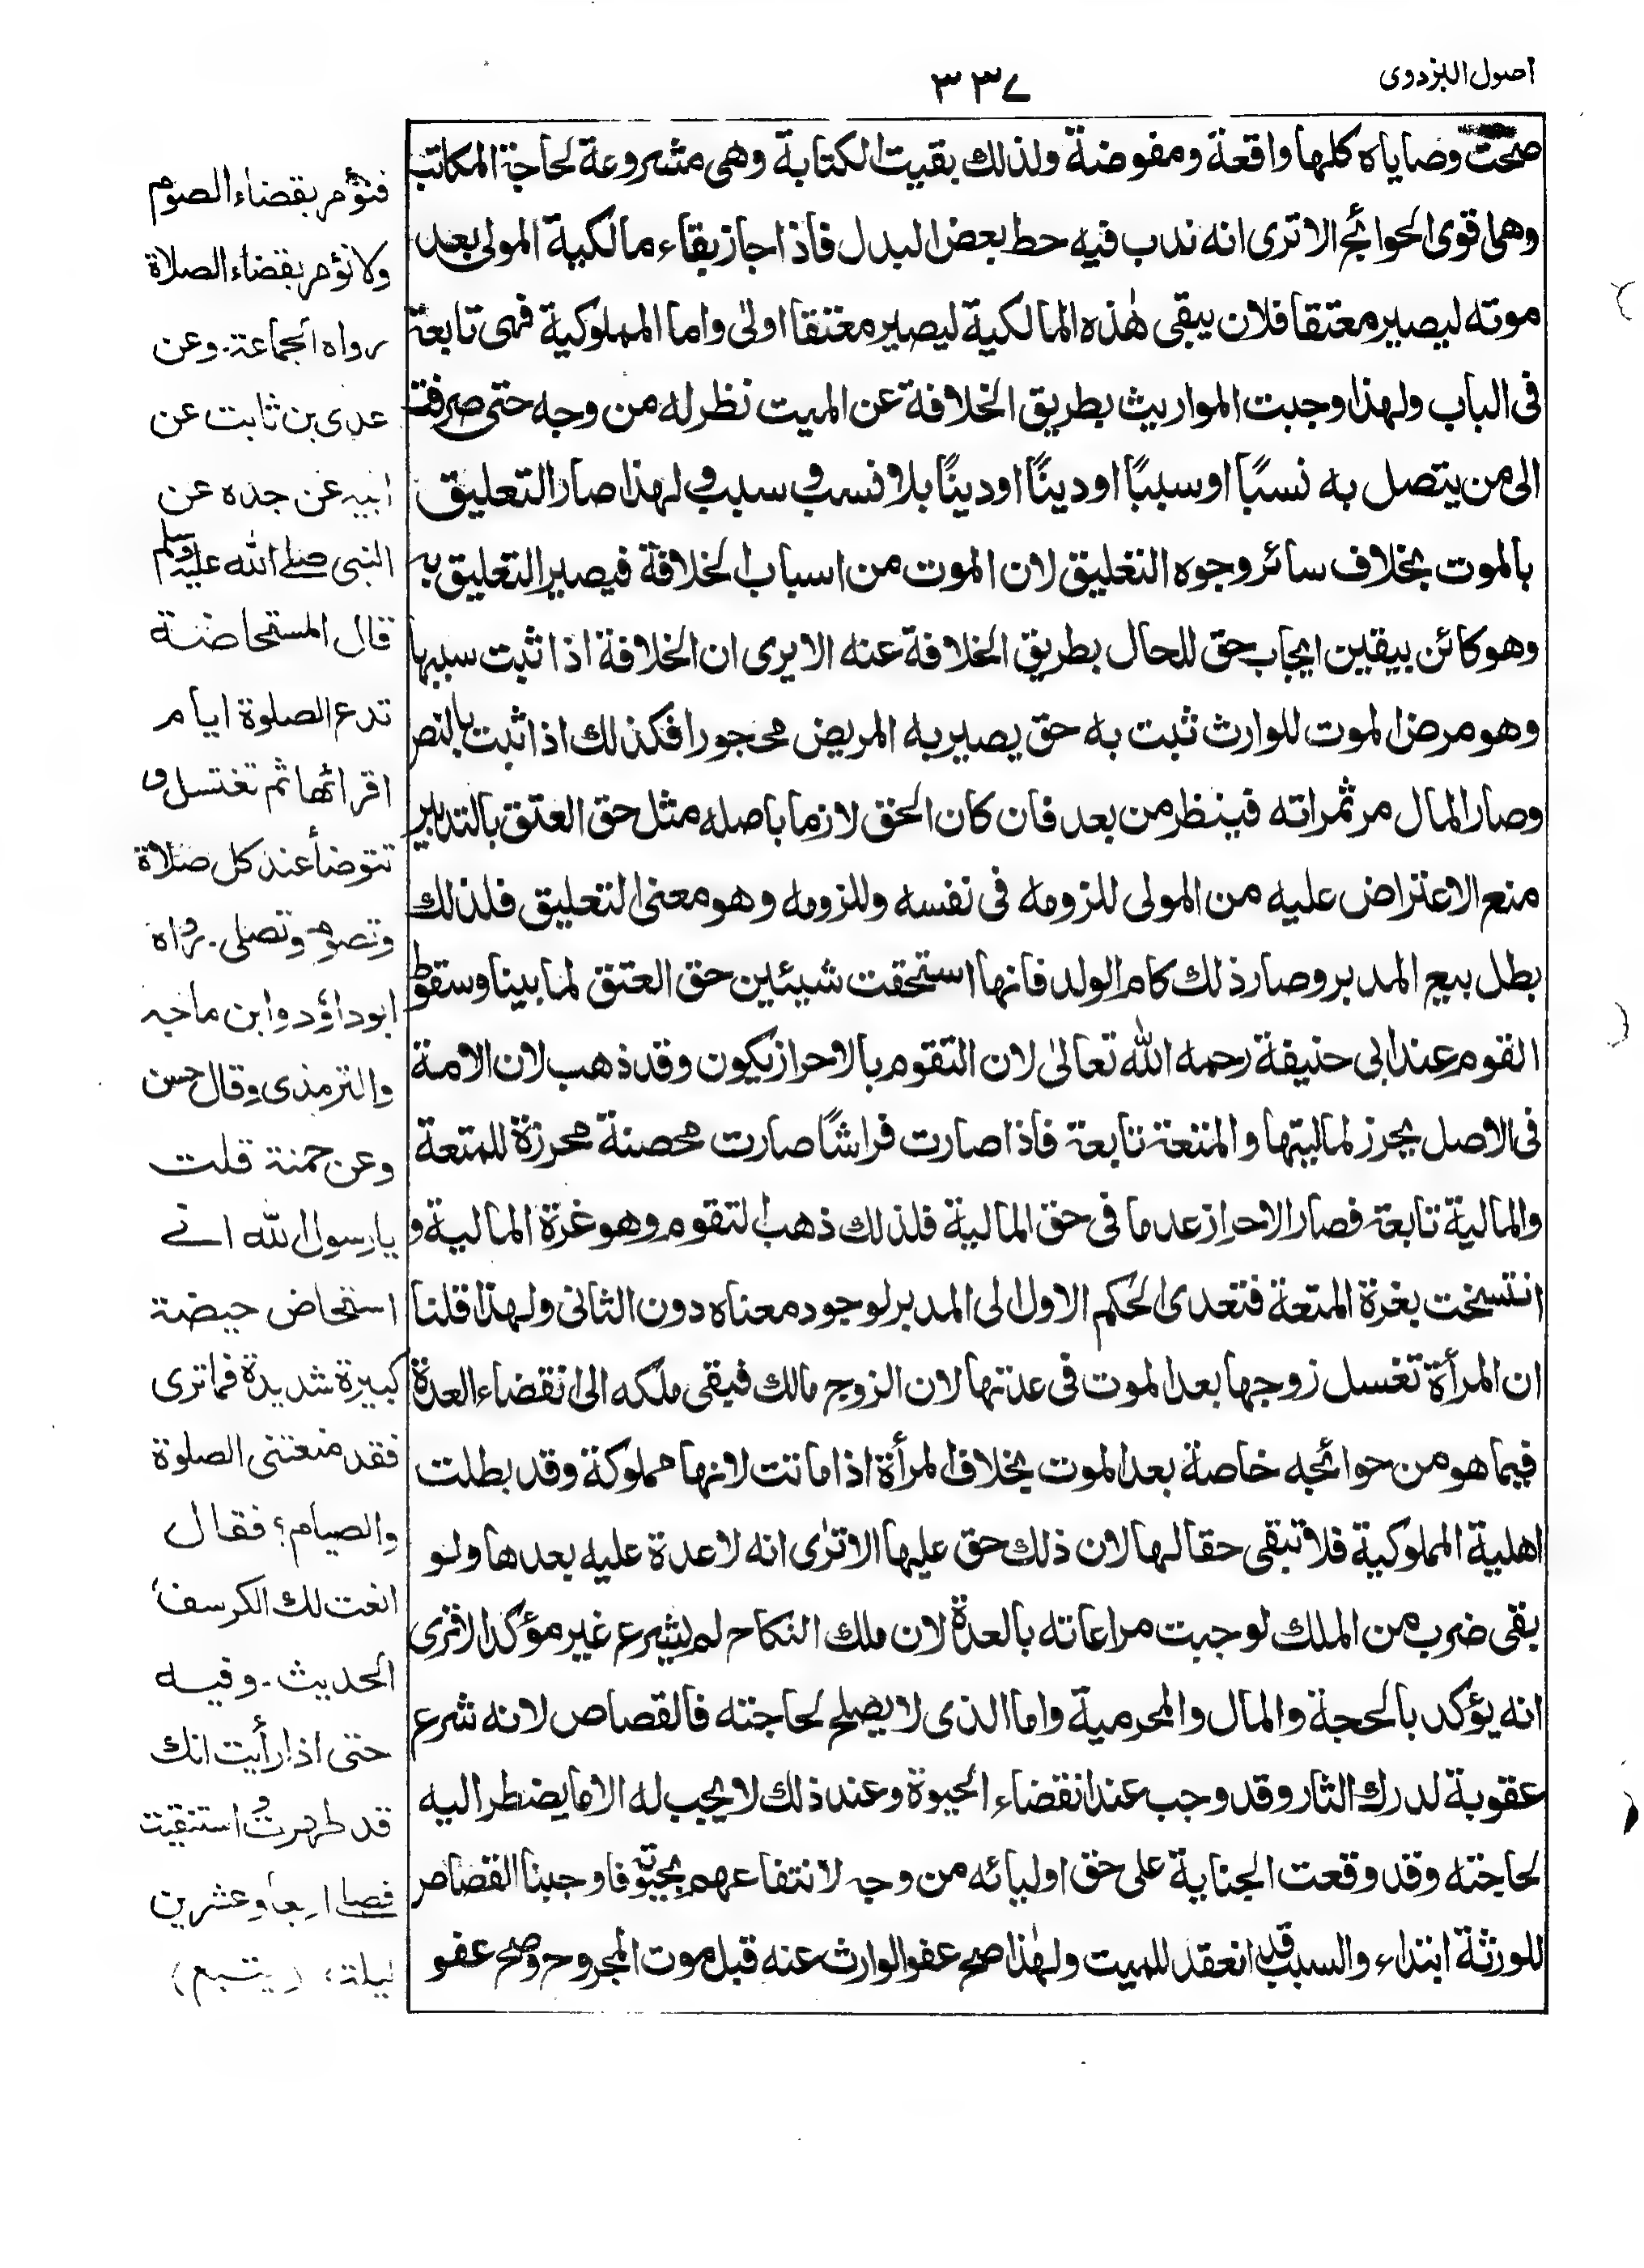 اصول البزدوی
۳۳۷
صحت وصایاه کلها واقعة ومفوضة ولذلك بقیت الکتابة وهی مشروعة لحاجة المکاتب
وهی اقوی الحوائج الا تری انه ندب فیه حط بعض البدل فاذا جاز بقاء مالکیة المولی بعد
موته لیصیر معتقا فلان یبقی هٰذه المالکیة لیصیر معتقا اولیٰ واما المملوکیة فهی تابعة
فی الباب ولهذا وجبت المواریث بطریق الخلافة عن المیت نظر له من وجه حتی صرفت
الی من یتصل به نسبًا او سببًا او دینًا او دینًا بلا نسب و سبب و لهذا صار التعلیق
بالموت بخلاف سائر وجوه التعلیق لان الموت من اسباب الخلافة فیصیر التعلیق به
وهو کائن بیقین ایجاب حق للحال بطریق الخلافة عنه الا یری ان الخلافة اذا ثبت سببها
وهو مرض الموت للوارث ثبت به حق یصیر به المریض محجورا فکذلك اذا ثبت بالنص
وصار المال من ثمراته فینظر من بعد فان کان الحق لازما باصله مثل حق العتق بالتدبیر
منع الاعتراض علیه من المولی للزومه فی نفسه وللزومه وهو معنی التعلیق فلذلك
بطل بیع المدبر وصار ذلك کام الولد فانها استحقت شیئین حق العتق لما بینا وسقوط
القوم عند ابی حنیفة رحمه الله تعالیٰ لان التقوم بالاحراز یکون وقد ذهب لان الامة
فی الاصل یحرز لمالیتها والمتعة تابعة فاذا صارت فراشًا صارت محصنة محرزة للمتعة
والمالیة تابعة فصار الاحراز عدما فی حق المالیة فلذلك ذهب التقوم وهو غرة المالیة و
انتسخت بغرة المتعة فتعدی الحکم الاول الی المدبر لوجود معناه دون الثانی ولهذا قلنا
ان المرأة تغسل زوجها بعد الموت فی عدتها لان الزوج مالك فیقی ملکه الی انقضاء العدة
فیما هو من حوائجه خاصة بعد الموت بخلاف المرأة اذا ماتت لانها مملوکة وقد بطلت
اهلیة المملوکیة فلا تبقی حقا لها لان ذلك حق علیها الا تریٰ انه لا عدة علیه بعدها ولو
بقی ضرب من الملك لوجبت مراعاته بالعدة لان ملك النکاح لم یشرع غیر مؤکد الا تری
انه یؤکد بالحجة والمال والمحرمیة واما الذی لا یصلح لحاجته فالقصاص لانه شرع
عقوبة لدرك الثار وقد وجب عند انقضاء الحیوة وعند ذلك لا یجب له الا ما یضطر الیه
لحاجته وقد وقعت الجنایة علی حق اولیائه من وجه لانتفاعهم بحیوته فاوجبنا القصاص
للورثة ابتداء والسبب قد انعقد للمیت ولهٰذا صح عفو الوارث عنه قبل موت المجروح وصح عفو
فنؤمر بقضاء الصوم
ولا نؤمر بقضاء الصلاة
رواه الجماعة۔ وعن
عدی بن ثابت عن
ابیه عن جده عن
النبی صلی الله علیه وسلم
قال المستحاضة
تدع الصلوة ایام
اقرائها ثم تغتسل و
تتوضأ عند کل صلاة
وتصوم وتصلی۔ رواه
ابوداؤد وابن ماجه
والترمذی وقال حسن
وعن حمنة قلت
یا رسول الله انی
استحاض حیضة
کبیرة شدیدة فما تری
فقد منعتنی الصلوة
والصیام؟ فقال
انعت لك الکرسف،
الحدیث۔ وفیه
حتی اذا رأیت انك
قد طهرت واستنقیت
فصلی اربعا وعشرین
لیلة، (یتبع)